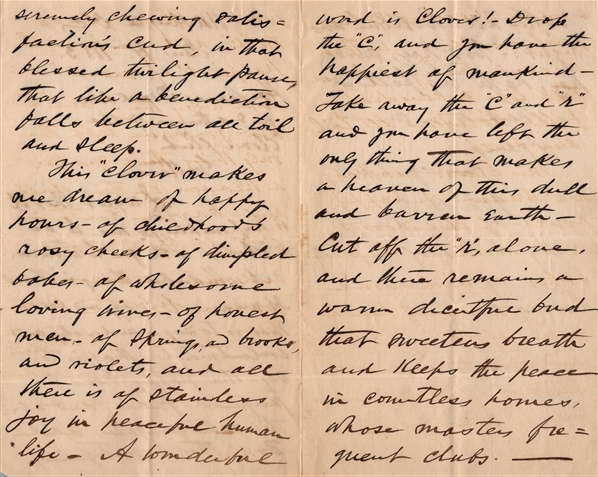 serenely chewing satis=
faction's cud, in that
blessed twilight pause,
that like a benediction
falls between all toil
and sleep.
This "clover" makes
me dream of happy
hours - of childhood's
rosy cheeks - of dimpled
babes - of wholesome
loving wives - of honest
men - of springs, and brooks,
and violets, and all
there is of stainless
joy in peaceful human
life - A wonderful
word is Clover! - Drop
the "C", and you have the
happiest of mankind -
Take away the "C" and "R"
and you have left the
only thing that makes
a heaven of this dull
and barren Earth -
Cut off the "R", alone,
and there remains a
warm deceitful bud
that sweetens breath
and keeps the peace
in countless homes,
whose masters fre=
quent clubs. —